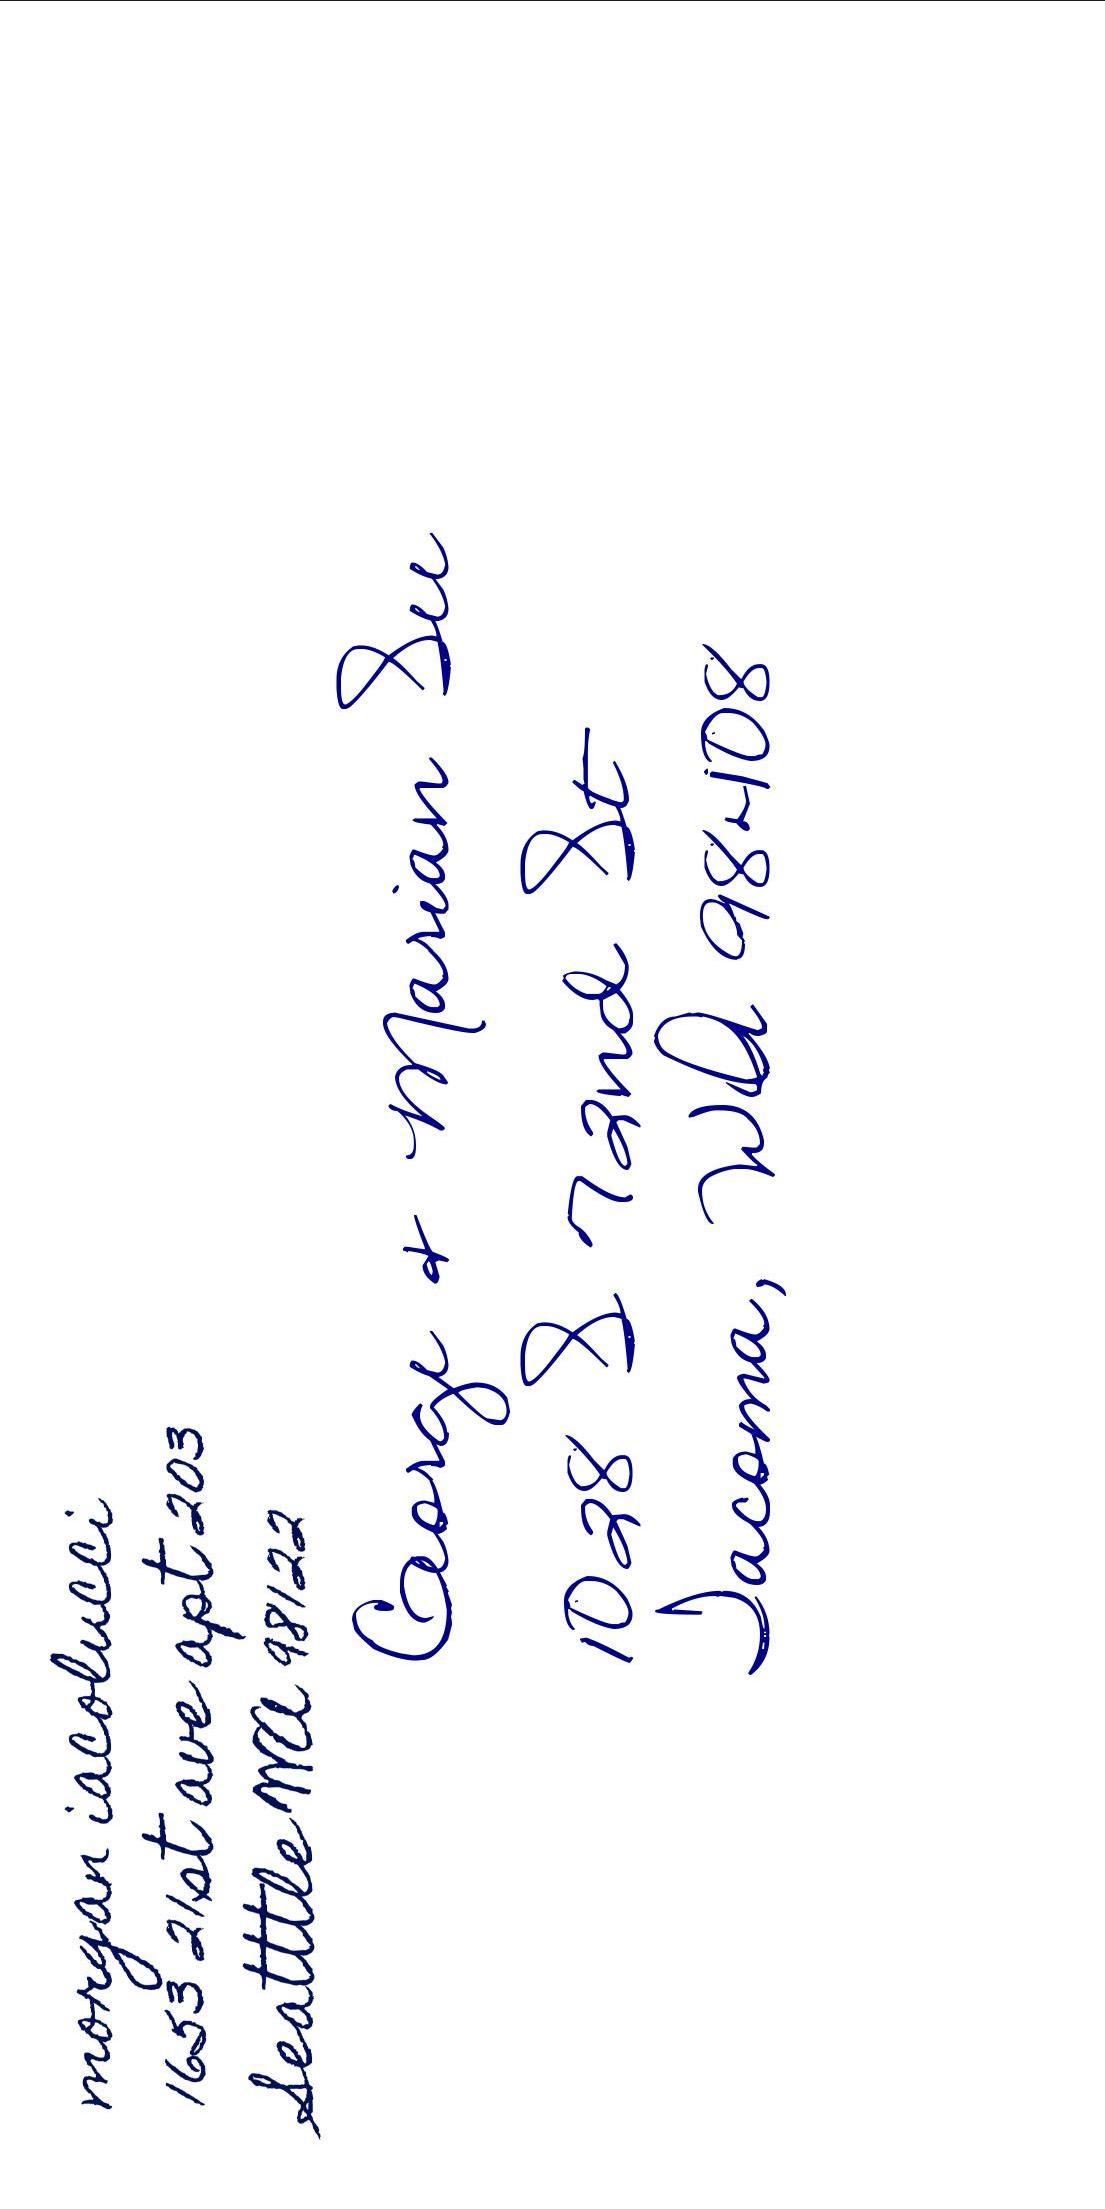 morgan iacolucci
1653 21st ave apt 203
Seattle WA 98122
George & Marian See
1028 S 72nd St
Tacoma, WA 98408